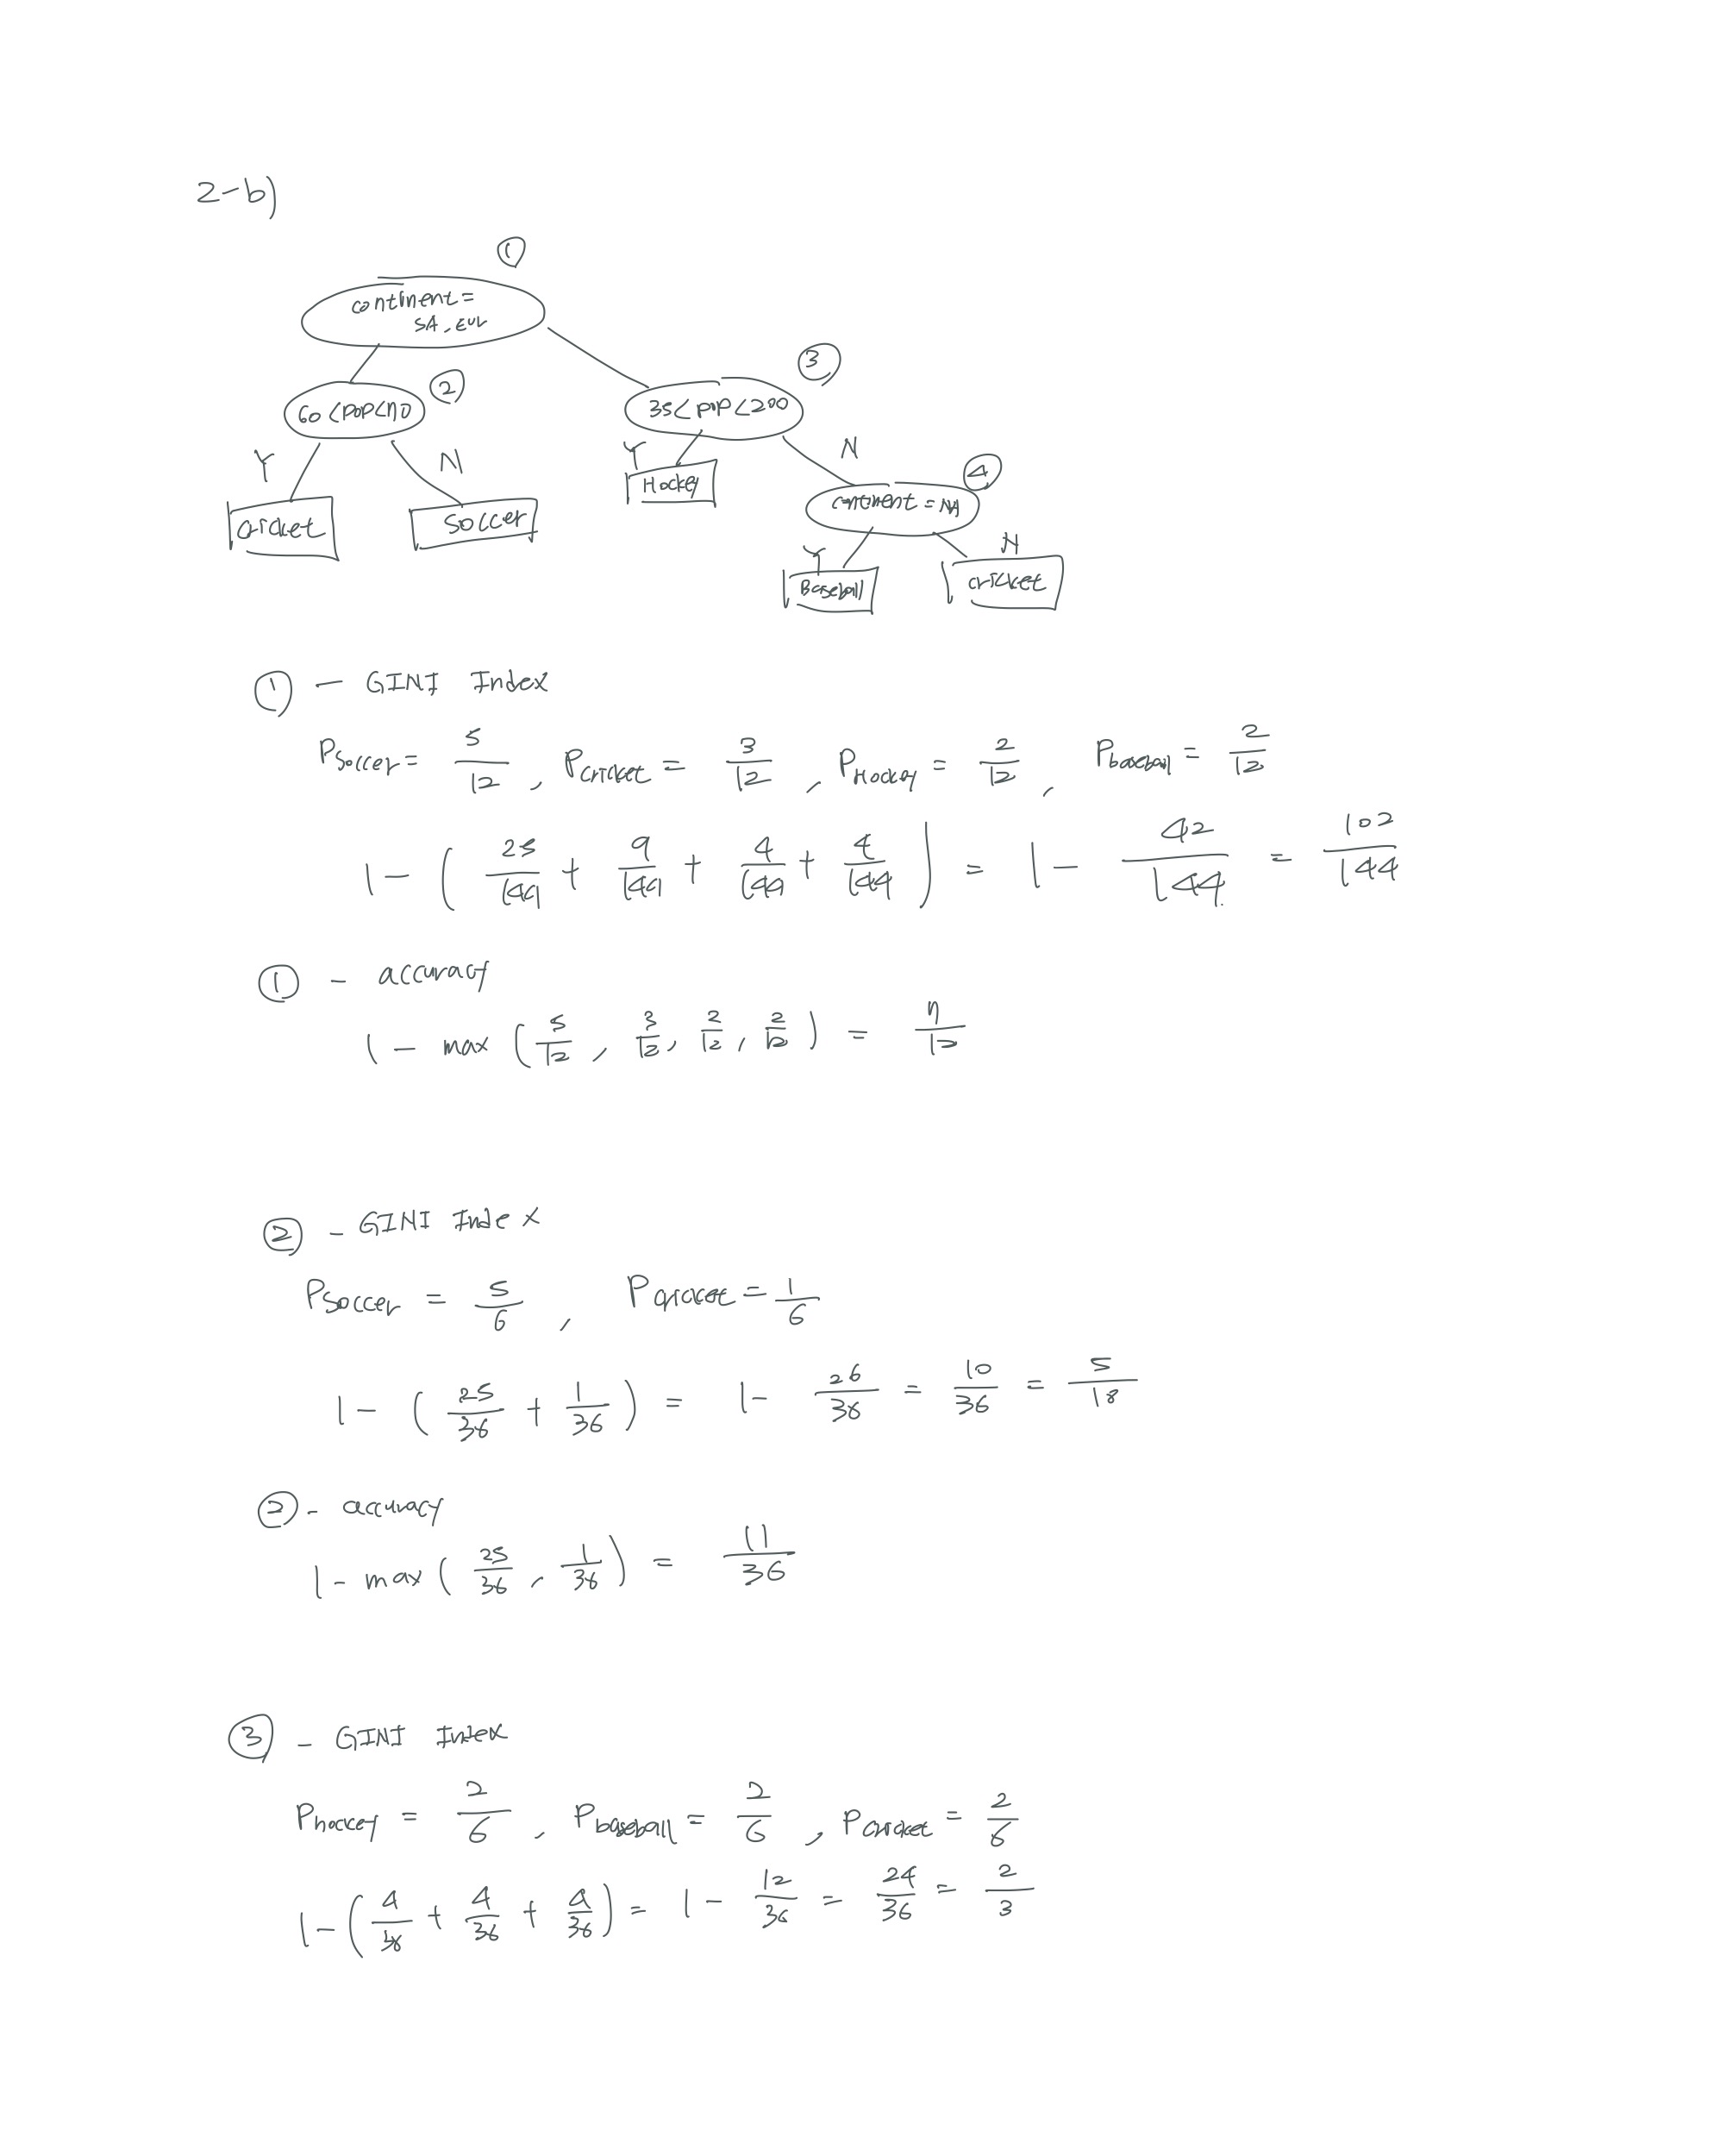 2-b)
①
continent =
SA, EUR
③
②
60 < POP < 70
35 < POP < 200
Y N
Y N
Hockey
④
continent = NA
cricket
soccer
Y N
Baseball
cricket
① - GINI Index
P_Soccer = 5/12 , P_Cricket = 3/12 , P_Hockey = 2/12 , P_baseball = 2/12
1 - ( 25/144 + 9/144 + 4/144 + 4/144 ) = 1 - 42/144 = 102/144
① - accuracy
1 - max ( 5/12 , 3/12 , 2/12 , 2/12 ) = 7/12
② - GINI Index
P_Soccer = 5/6 , P_cricket = 1/6
1 - ( 25/36 + 1/36 ) = 1 - 26/36 = 10/36 = 5/18
② - accuracy
1 - max ( 25/36 , 1/36 ) = 11/36
③ - GINI Index
P_hockey = 2/6 , P_baseball = 2/6 , P_cricket = 2/6
1 - ( 4/36 + 4/36 + 4/36 ) = 1 - 12/36 = 24/36 = 2/3